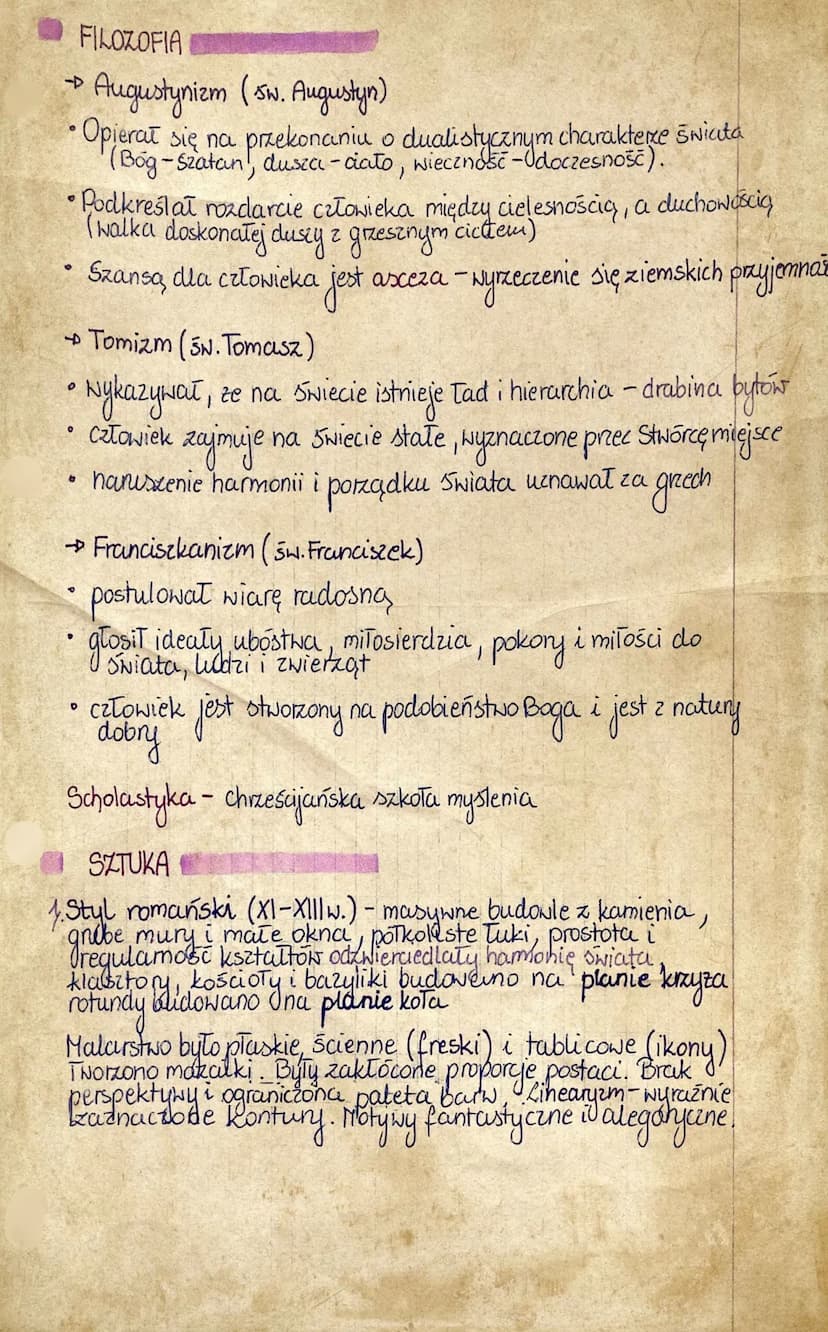 FILOZOFIA
→ Augustynizm (św. Augustyn)
• Opierał się na przekonaniu o dualistycznym charakterze świata
(Bóg - Szatan, dusza - ciało, wieczność - doczesność).
• Podkreślał rozdarcie człowieka między cielesnością, a duchowością
(walka doskonałej duszy z grzesznym ciałem)
• Szansą dla człowieka jest asceza - wyrzeczenie się ziemskich
→ Tomizm (św. Tomasz)
• wykazywał, że na świecie istnieje ład i hierarchia - drabina bytów
• człowiek zajmuje na świecie stałe, wyznaczone przez Stwórcę miejsce
• naruszenie harmonii i porządku świata uznawał za grzech
→ Franciszkanizm (św. Franciszek)
• postulował wiarę radosną
• głosił ideały ubóstwa, miłosierdzia, pokory i miłości do
świata, ludzi i zwierząt
• człowiek jest stworzony na podobieństwo Boga i jest z natury
dobry
Scholastyka - chrześcijańska szkoła myślenia
SZTUKA
1. Styl romański (XI-XIII w.) - masywne budowle z kamienia,
grube mury i małe okna, półkoliste łuki, prostota i
regularność kształtów odzwierciedlały harmonię świata,
klasztory, kościoły i bazyliki budowano na planie krzyża
rotundy budowano na planie koła
Malarstwo było płaskie, ścienne (freski) i tablicowe (ikony)
Tworzono mozaiki. Były zakłócone proporcje postaci. Brak
perspektywy i ograniczona paleta barw. Linearyzm - wyraźnie
zaznaczone kontury. Motywy fantastyczne i alegoryczne.